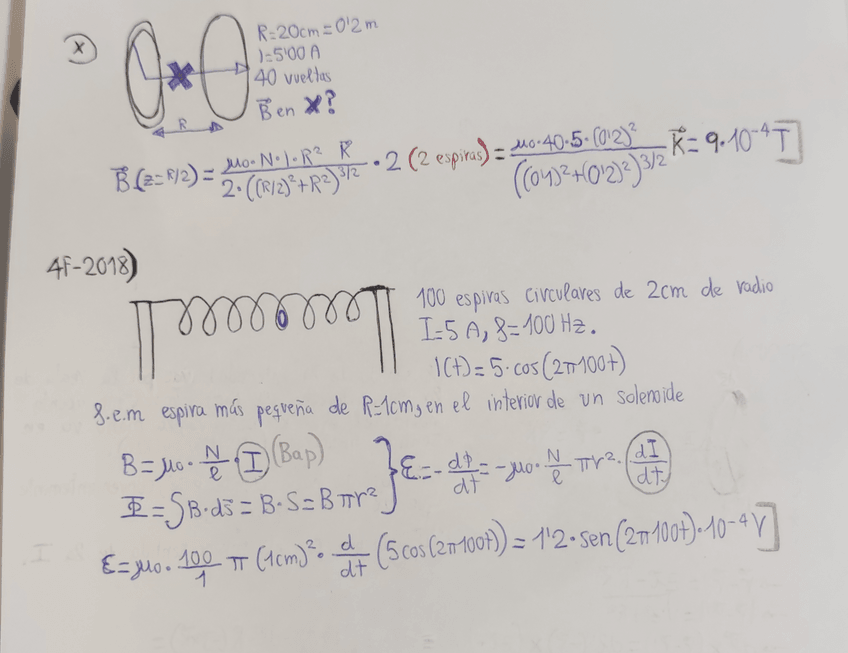 x
R=20cm=0'2m
I=5'00 A
40 vueltas
B⃗ en X?
R
B⃗(z=R/2) = μ₀·N·I·R² K⃗ / 2·((R/2)²+R²)^3/2 · 2 (2 espiras) = μ₀·40·5·(0'2)² / ((0'1)²+(0'2)²)^3/2 K⃗ = 9·10⁻⁴ T]
4F-2018)
100 espiras circulares de 2cm de radio
I=5 A, f=100 Hz.
I(t)=5·cos(2π100t)
f.e.m espira más pequeña de R=1cm, en el interior de un solenoide
B=μ₀·N/ℓ·I (Bap)
Φ=∫B·ds⃗=B·S=Bπr²
} ε=-dϕ/dt=-μ₀·N/ℓ πr²·dI/dt
ε=μ₀·100/1 π (1cm)²·d/dt (5cos(2π100t))=1'2·sen(2π100t)·10⁻⁴V]